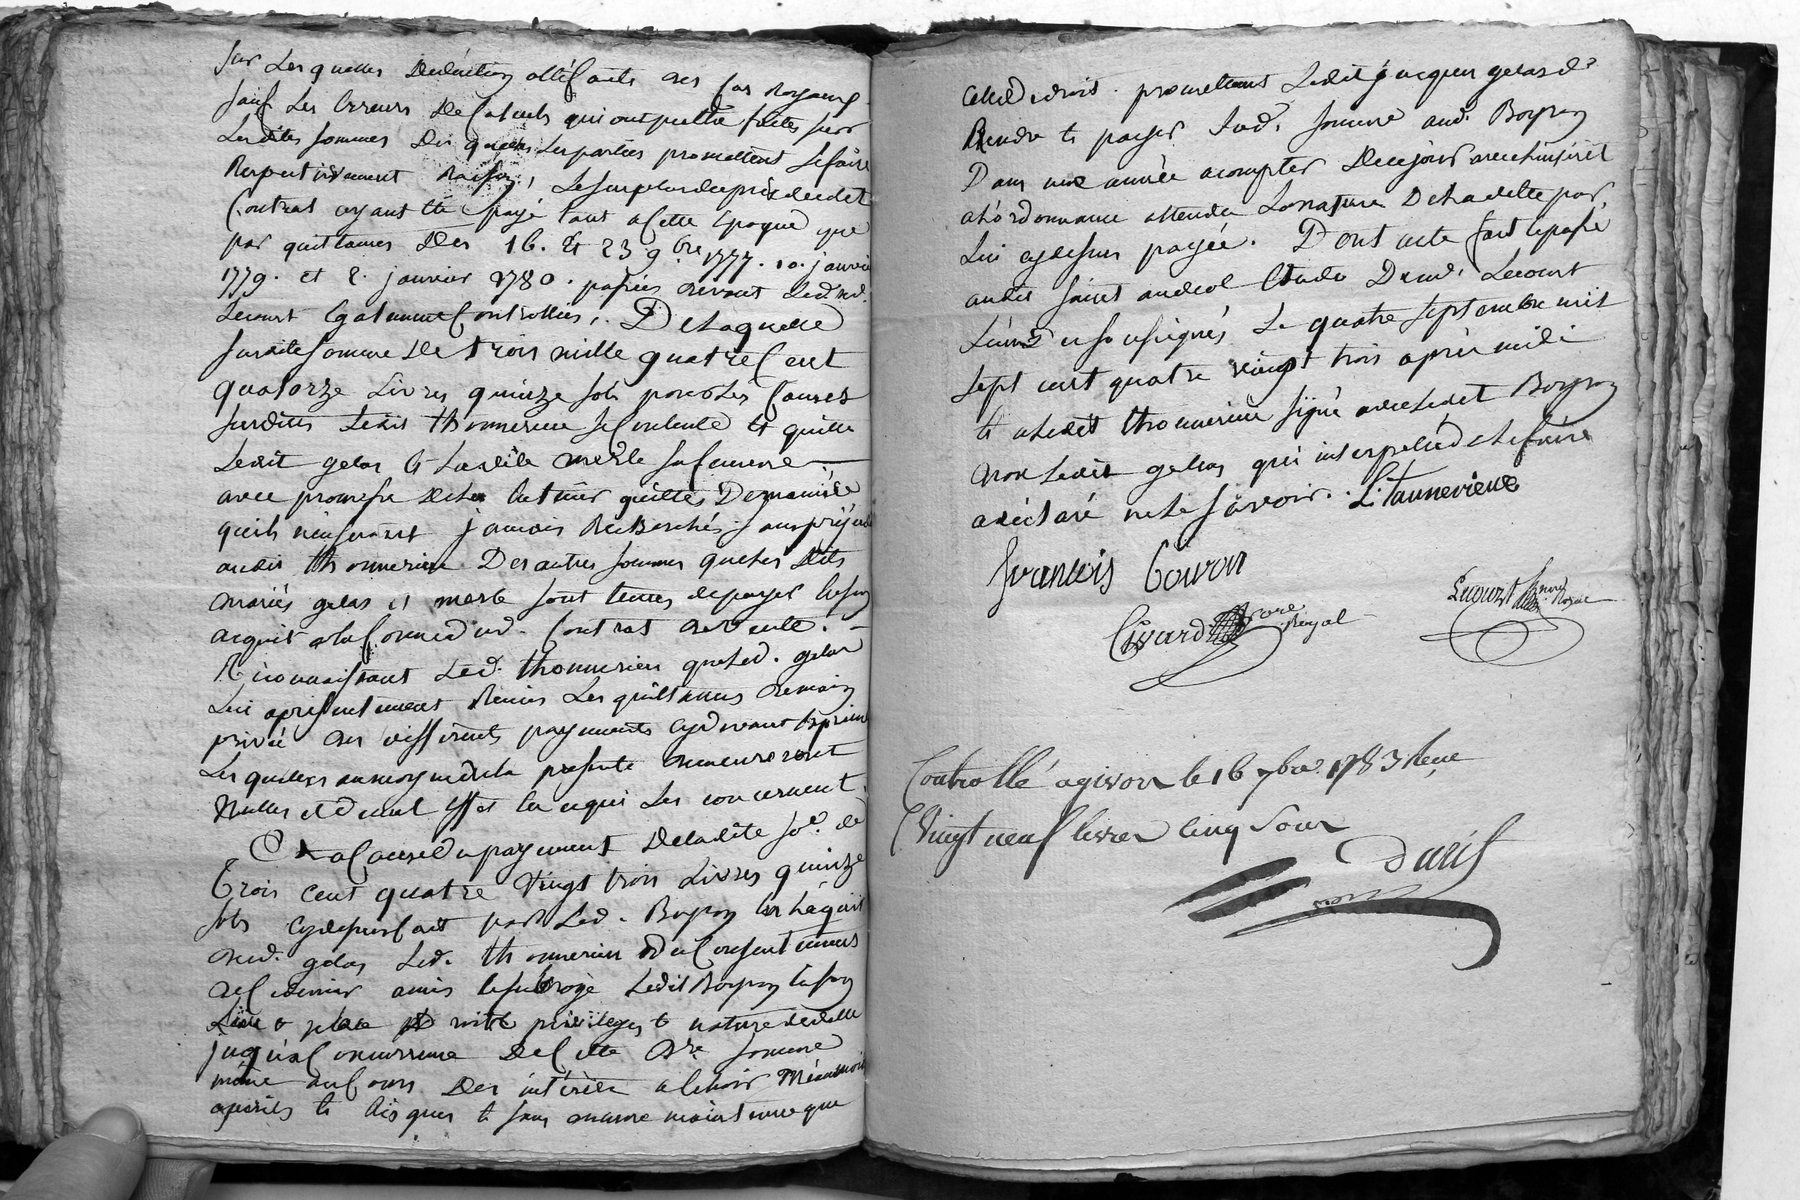 sur Lesquelles Deduction ont été faite des
sauf Les Erreurs De Calculs qui ont pu etre faites sur
Lesdites sommes Des quelles Les parties promettent se faire
Respectivement Raison, Le surplus du prix dudit
Contrat ayant été payé tant a Cette Epoque que
par quittances Des 16. Et 23 9.bre 1777. 10. janvier
1779. et 8. janvier 1780. passées devant Led. me.
Lecourt Egalement Controllées, . De Laquelle
susdite somme De trois mille quatre Cent
quatorze Livres quinze sols pour Les Causes
susdittes Ledit thonnerieux se Contente Et quitte
Ledit gelas Et Ladite merle sa femme
avec promesse De Les En tenir quittes De maniere
quils n'en seront jamais Recherchés, sans préjudice
audit thonnerieux Des autres sommes que les Dits
mariés gelas et merle sont tenus de payer En son
acquit a la forme dud. Contrat De vente.
Reconnaissant Led. thonnerieu que Led. gelas
Lui a presentement Remis Les quittances De main
privée Des differents payements cy devant Exprimés
Les quelles au moyen de la presente Demeureront
Nulles et de nul Effet En ce qui Les concernent
Et a Cause du payement De Ladite so.e de
Trois cent quatre Vingt trois Livres quinze
sols cy dessus fait par Led. Boyron En L'acquit
dud. gelas Led. thonnerieu du Consentement
de Ce dernier a mis Et subrogé Ledit Boyron En son
Lieu & place droit privileges Et nature de dette
jusqu'a Concurrence De Cette De.re somme
même au Cours Des intérêts a Echoir
perils Et Risques Et sans aucune maintenue que
celle de droit. promettant Ledit jacques gelas de
Rendre Et payer Lad. somme aud. Boyron
Dans une année a compter De ce jour avec L'interet
a L'ordonnance attendu La nature De La dette par
Lui cy dessus payée. Dont acte fait Et passé
audit saint andeol Etude Dud. me. Lecourt
L'un d'eux soussignés Le quatre septembre mil
sept cent quatre vingt trois après midi
Et a Ledit thonnerieux signé avec Ledit Boyron
non Ledit gelas qui interpellé de Le faire
a déclaré ne Le savoir. L. Taunerieux
françois Boiron
Civard Nore Royal
Lecourt Royal
Controllé a givors le 16 7bre 1783 Recu
Vingt neuf livres cinq Sous
Duris